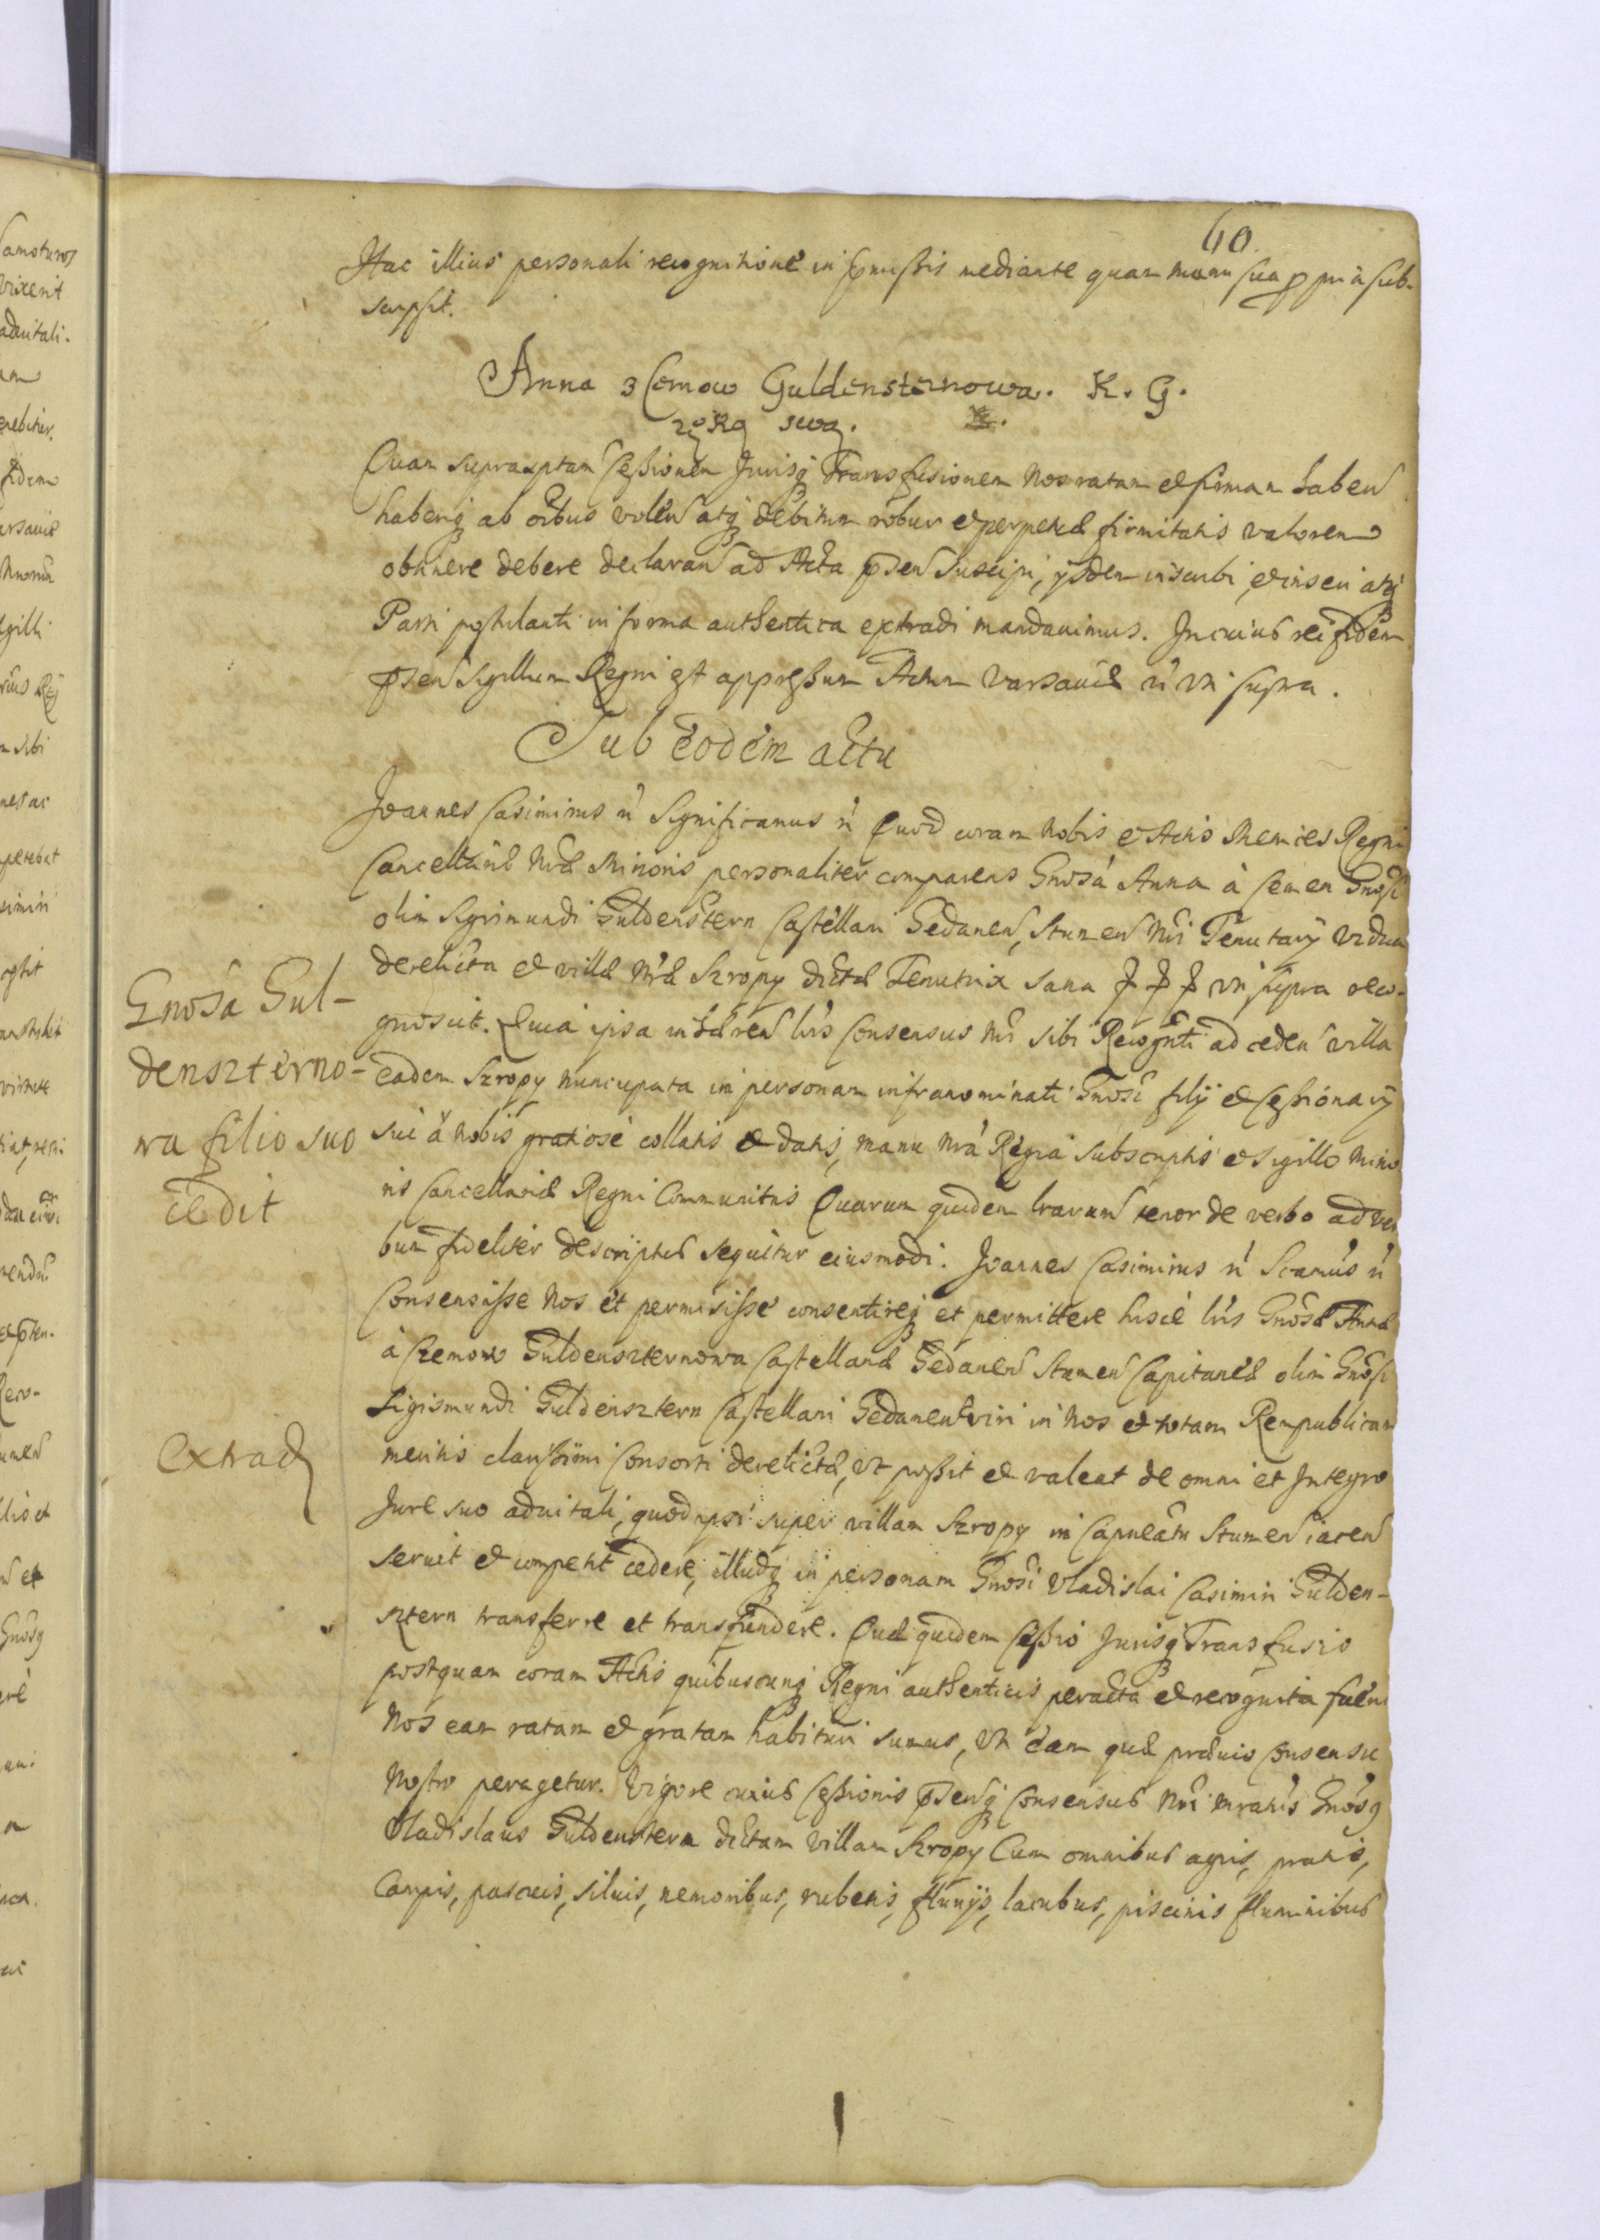 60
Hac illius personali recognitione in p̱missis mediante quam manu sua ꝓpria sub-
scripsit.
Anna z Cemow Guldensternowa. K. G.
ręką swą.
Quam suprascptam Cessionem Jurisq Transfusionem Nos ratam et firmam haben
haberiq ab oībus volen atq debitum robur et perpetuæ firmitatis valorem
obtinere debere declaran ad Acta p̱sen Suscipi, ijsdem inscribi, et inseri atq
Parti postulanti in forma authentica extradi mandauimus. In cuius rei fidem
p̱sen Sigillum Regni est appressum Actum Varsauiæ ń vti supra.
Sub eodem actu
Joannes Casimirus ń Significamus ń Quod coram Nobis et Actis Regni
Cancellariæ Nræ Minoris personaliter comparens Gnosa Anna à Cemen Gnosi
olim Sigismundi Guldenstern Castellani Gedanen, Stumen Nri Tenutarij vidua
derelicta et villæ Nræ Szropy dictæ Tenutrix sana vti supra reco-
gnouit. Quia ipsa inhæren lris Consensus Nri sibi Recognti ad ceden villa
eadem Szropy nuncupata in personam infranominati Gnosi filij et Cessionarij
sui à Nobis gratiose collatis et datis, manu Nra Regia subscriptis et Sigillo Mino
ris Cancellariæ Regni Communitis Quarum quidem lrarum tenor de verbo ad ver
bum fideliter descriptus sequitur eiusmodi. Joannes Casimirus ń Scamus ń
Consensisse Nos et permisisse consentireq et permittere hisce lris Gnosæ Annæ
à Czemow Guldenszternowa Castellanæ Gedanen Stumen Capitaneæ olim Gnosi
Sigismundi Guldensztern Castellani Gedanen viri in Nos et totam Rempublicam
meritis clarissimi Consorti derelictæ, vt possit et valeat de omni et Integro
Jure suo aduitali, quod ipsi super villam Szropy in Capneatu Stumen iacen
seruit et competit cedere, illudq in personam Gnosi Vladislai Casimiri Gulden-
sztern transferre et transfundere. Quæ quidem Cessio Jurisq Transfusio
postquam coram Actis quibuscunq Regni authenticis peracta et recognita fueri
Nos eam ratam et gratam habituri sumus, vti eam quæ præuio Consensu
Nostro peragetur. Vigore cuius Cessionis p̱senq Consensus Nri Gnosq
Vladislaus Guldenstern dictam villam Szropy Cum omnibus agris, pratis,
Campis, pascuis, siluis, nemoribus, rubetis, fluuijs, lacubus, piscinis fluminibus
Gnosa Gul-
denszterno-
wa filio suo
cedit
Extrad